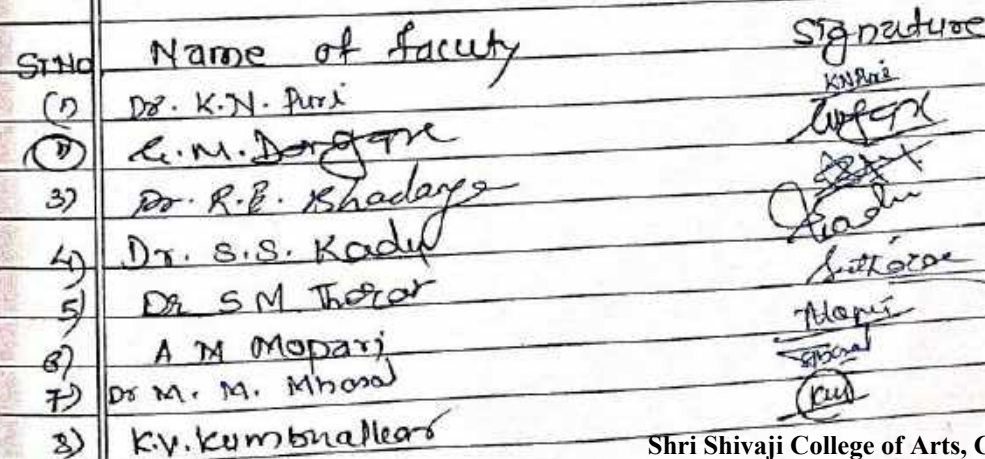 Sr.No Name of facuty Signature
(1) Dr. K.N. Puri KNPuri
(2) G.M. Dongare
3) Dr. R.B. Bhadange
4) Dr. S.S. Kadu Kadu
5) Dr S M Thorat
6) A M Mopari Mopari
7) Dr M. M. Mhasal
8) K.V. Kumbhalkar
Shri Shivaji College of Arts, C